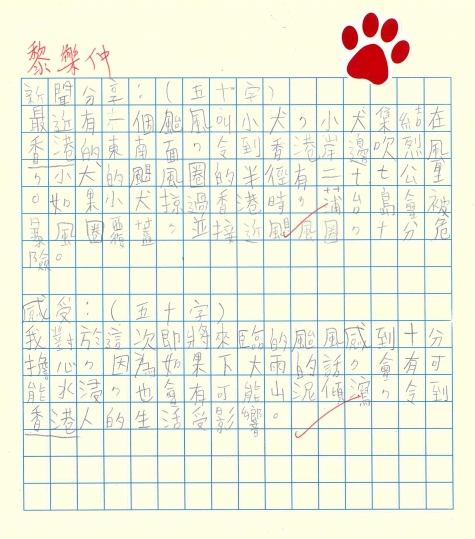 黎樂仲
新聞分享：(五十字)
最近有一個颱風叫小犬，小犬集結在
香港的東南面，令到香港岸邊吹烈風
。小犬的颶風圈的半徑有二十七公里
，如果小犬掠過香港時，蒲台島會被
暴風圈覆蓋，並接近颶風圈，十分危
險。
感受：(五十字)
我對於這次即將來臨的颱風感到十分
擔心，因為如果下大雨的話，會有可
能水浸，也會有可能山泥傾瀉，令到
香港人的生活受影響。